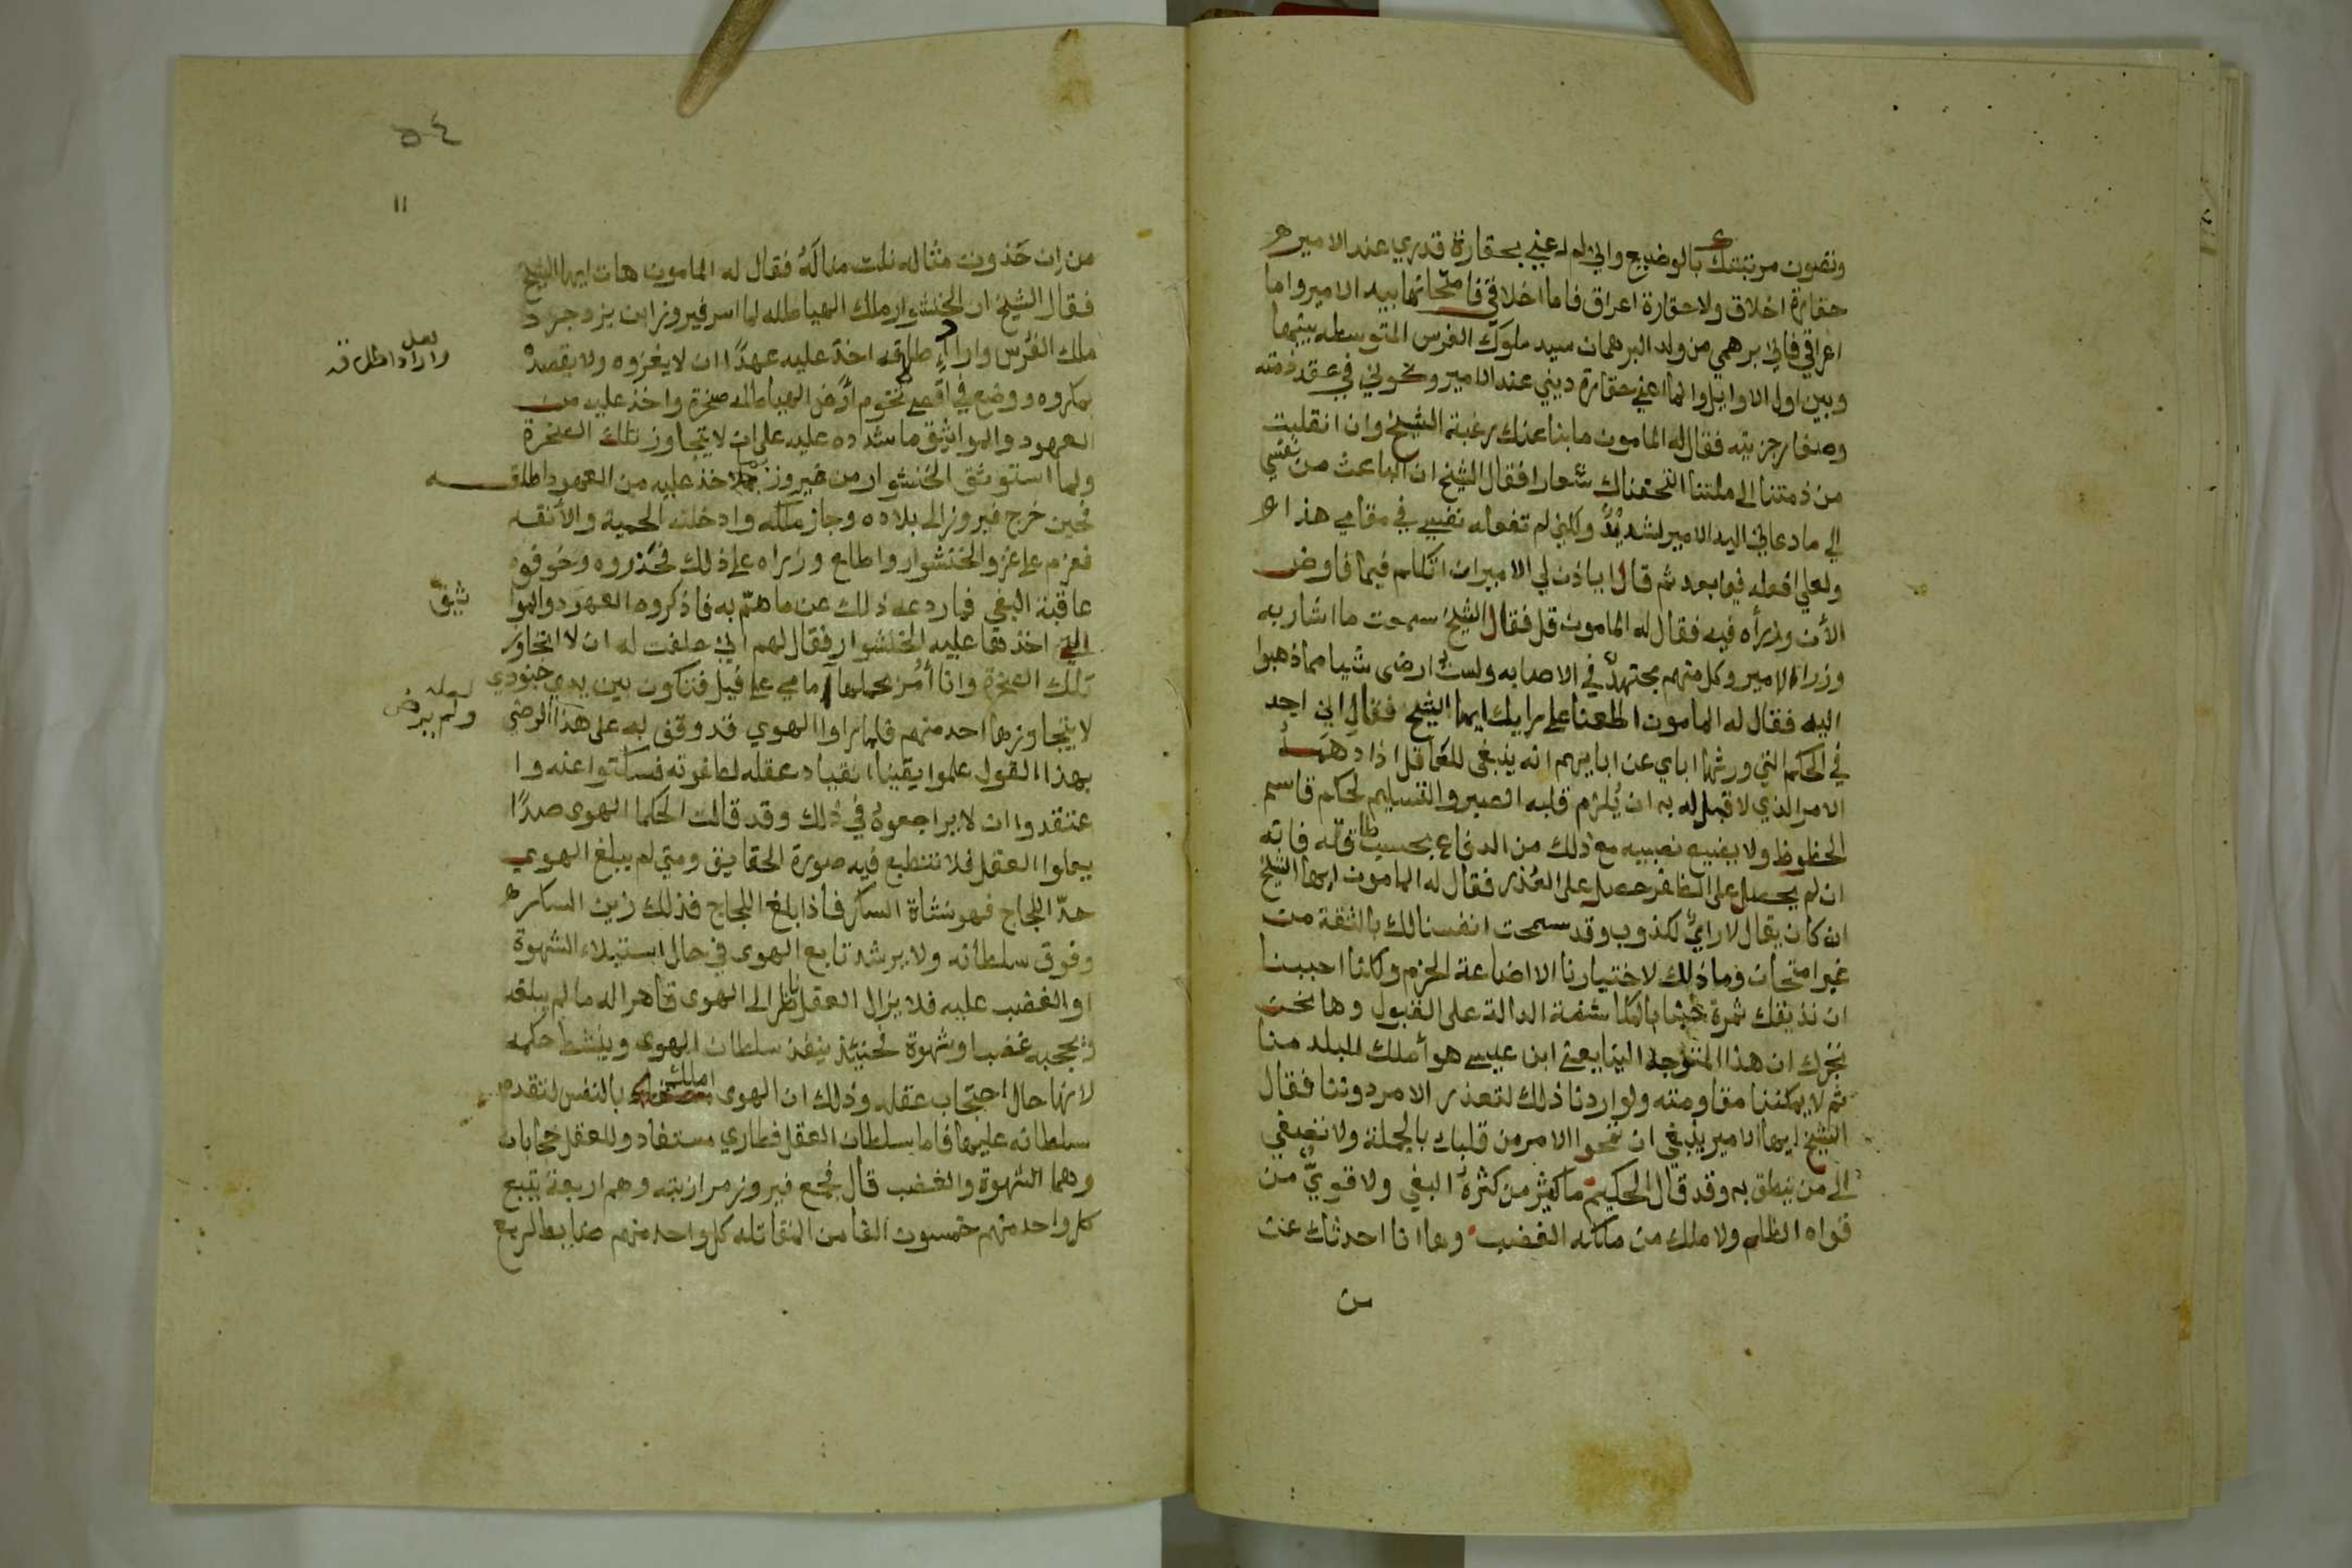 وتصون مرتبتك بالوضيع واني لم اعني بحقارة قدري عند الامير
حقارة اخلاق ولا حقارة اعراق فاما اخلاقي فامتحانها بيد الامير واما
اعراقي فاني برهمي من ولد البرهمان سيد ملوك الفرس المتوسطه بينها
وبين اول الاوايل وانما اعني حقارة ديني عند الامير وكوني في عقد ذمته
وصغار جزيته فقال له المامون ما بنا عنك رغبة الشيخ وان انقلبت
من ذمتنا الى ملتنا اتخذناك شعارا فقال الشيخ ان الباعث من نفسي
الي ما دعاني اليه الامير لشديد ولكني لم تفعله نفسي في مقامي هذا
ولعلي افعله فيما بعد ثم قال اياذن لي الامير ان اتكلم فيما فاوض
الأن وزرأه فيه فقال له المامون قل فقال الشيخ سمعت ما اشار به
وزراء الامير وكل منهم مجتهد في الاصابه ولست ارضى شيا مما ذهبوا
اليه فقال له المامون اطلعنا على رايك ايها الشيخ فقال اني اجد
في الحكم التي ورثها اباي عن ابايهم انه ينبغي للعاقل اذا دهمه
الامر الذي لا قبل له به ان يلزم قلبه الصبر والتسليم لحكم قاسم
الحظوظ ولا يضيع نصيبه مع ذلك من الدفاع بحسب طاقته فانه
ان لم يحصل على الظفر حصل على العذر فقال له المامون ايها الشيخ
ان كان يقال لا راي لكذوب وقد سمحت انفسنا لك بالثقة من
غير امتحان وما ذلك لاختيارنا الا اضاعة الحزم ولكننا احببنا
ان نذيقك ثمرة حبنا بالمكاشفة الدالة على القبول وها نحن
نخبرك ان هذا المتوجه الينا يعني ابن عيسى هو أملك للبلد منا
ثم لا يمكننا مقاومته ولو اردنا ذلك لتعذر الامر دوننا فقال
الشيخ ايها الامير ينبغي ان تمحوا الامر من قلبك بالجملة ولا تصغي
الى من ينطق به وقد قال الحكيم ما كثير من كثرة البغي ولا قوي من
قواه الظلم ولا ملك من ملكه الغضب وها انا احدثك عن
من
٥٤
١١
من ان حذوت مثاله نلت مناله فقال له المامون هات ايها الشيخ
فقال الشيخ ان الخنشوار ملك الهياطله لما اسر فيروز ابن يزدجرد
ملك الفرس واراد اطلاقه اخذ عليه عهدا ان لا يغزوه ولا يقصده
لعل
واراد اطلاقه
بمكروه ووضع في اقصى تخوم أرض الهياطله صخرة واخذ عليه من
العهود والمواثيق ما شدده عليه على ان لا يتجاوز تلك الصخرة
ولما استوثق الخنشوار من فيروز بما اخذ عليه من العهود اطلقه
فحين خرج فيروز الى بلاده وجاز ملكه وادخلته الحمية والأنفه
فعزم على غزو الخنشوار واطلع وزراه على ذلك فحذروه وخوفوه
عاقبة البغي فما ردعه ذلك عن ما هم به فاذكروه العهود والموا
ثيق
التي اخذها عليه الخنشوار فقال لهم اني حلفت له ان لا اتجاوز
تلك الصخرة وانا أمر بحملها امامي على فيل فتكون بين يدي جنودي
لا يتجاوزها احد منهم فلما راوا الهوي قد وقف به على هذا الرضى
لعله
ولم يرض
بهذا القول علموا يقينا انقياد عقله لطاغوته فسكتوا عنه وا
عتقدوا ان لا يراجعوه في ذلك وقد قالت الحكما الهوى صدا
يعلوا العقل فلا تنطبع فيه صورة الحقايق ومتى لم يبلغ الهوي
حد اللجاج فهو نشاة السكر فاذا بلغ اللجاج فذلك زين السكر
وفوق سلطانه ولا يرشد تابع الهوى في حال استيلاء الشهوة
او الغضب عليه فلا يزال العقل ناظرا الى الهوى قاهرا له ما لم يبلغه
ويحجبه غضب او شهوة فحينئذ ينفذ سلطان الهوى وينشط حكمه
لانها حال احتجاب عقله وذلك ان الهوى املك بالنفس لتقدم
سلطانه عليها فاما سلطان العقل فطاري مستفاد وللعقل حجابان
وهما الشهوة والغضب قال فجمع فيروز مرازبته وهم اربعة يتبع
كل واحد منهم خمسون الفا من المقاتله كل واحد منهم ضابط لربع